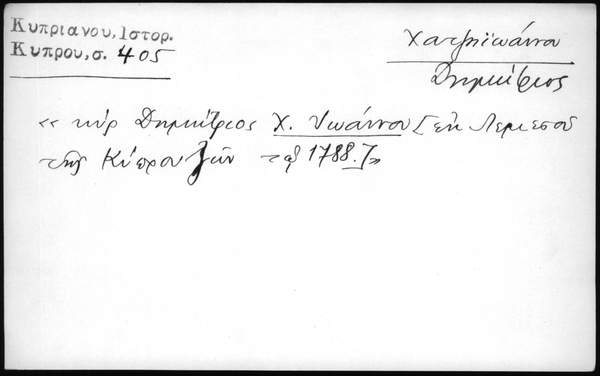 Κυπριανου, Ιστορ.
Κυπρου, σ. 405
Χατζηϊωάννου
Δημήτριος
« κὺρ Δημήτριος Χ. Ἰωάννου [ἐκ Λεμεσοῦ
τῆς Κύπρου ζῶν τῷ 1788.]»